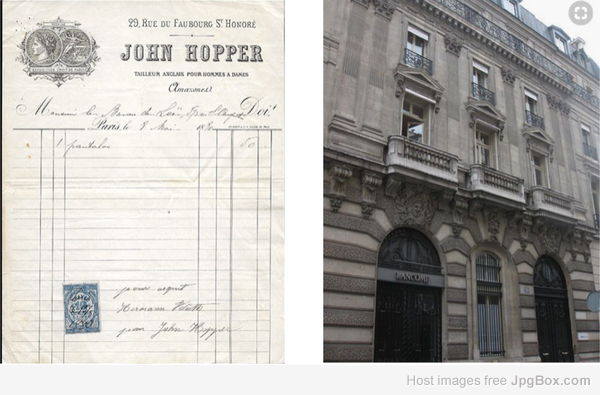 29, RUE DU FAUBOURG St. HONORÉ
JOHN HOPPER
TAILLEUR ANGLAIS POUR HOMMES & DAMES
(Amazones)
Monsieur le Baron de Doit
Paris, le 8 Mai 18
1 pantalon 60
pour acquit
Hermann
pour John Hopper
LANCOME
Host images free JpgBox.com